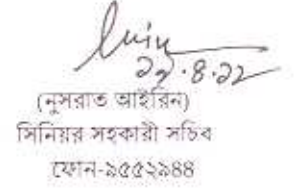 ২৭.৪.২২
(নুসরাত আইরিন)
সিনিয়র সহকারী সচিব
ফোন-৯৫৫২৯৪৪